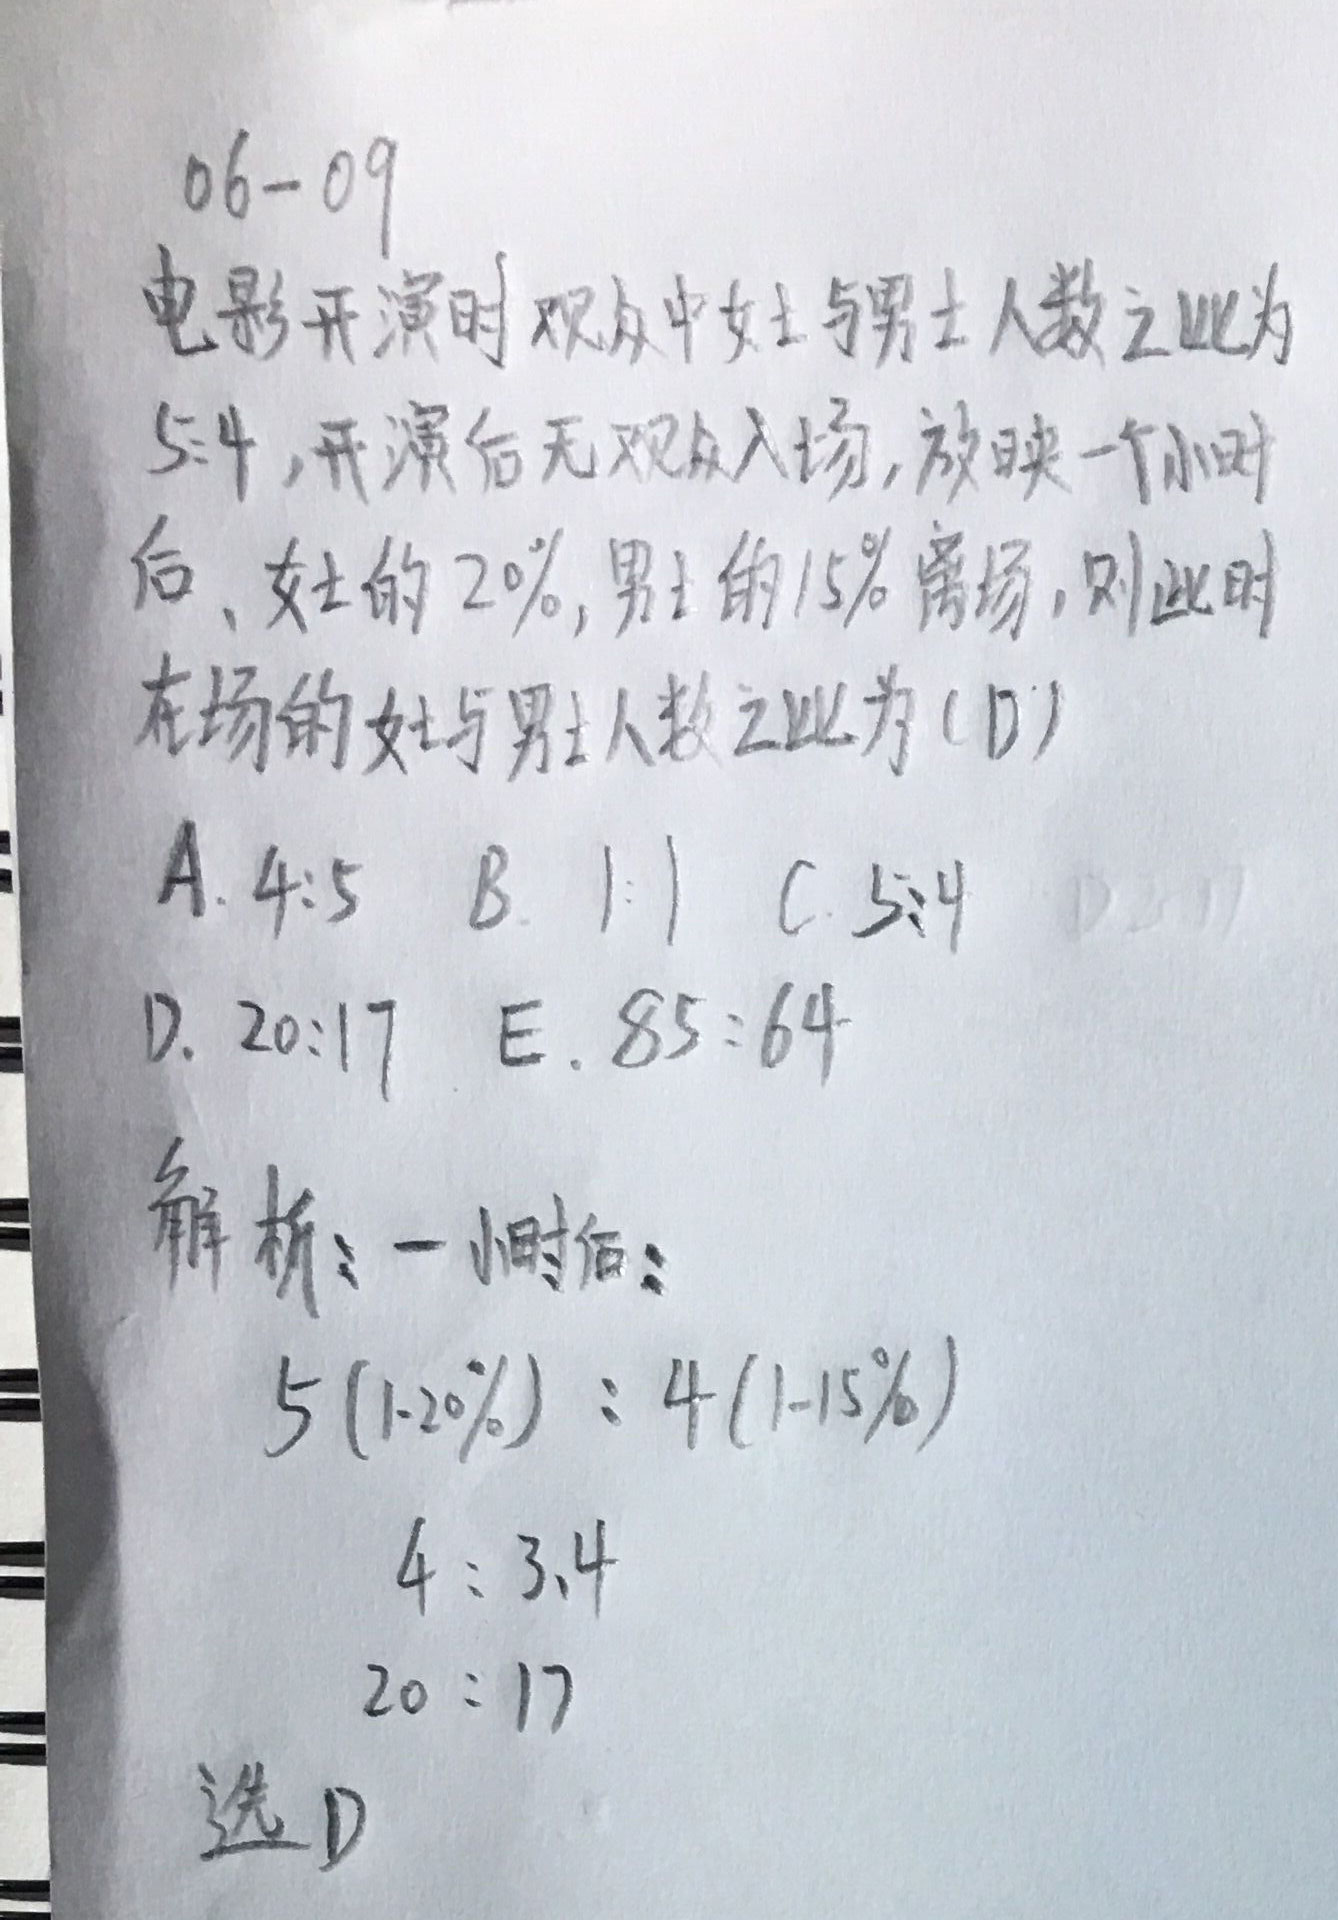 06-09
电影开演时观众中女士与男士人数之比为
5:4,开演后无观众入场,放映一个小时
后、女士的20%,男士的15%离场,则此时
在场的女士与男士人数之比为(D)
A. 4:5 B. 1:1 C. 5:4
D. 20:17 E. 85:64
解析:一小时后:
5(1-20%) : 4(1-15%)
4 : 3.4
20 : 17
选D